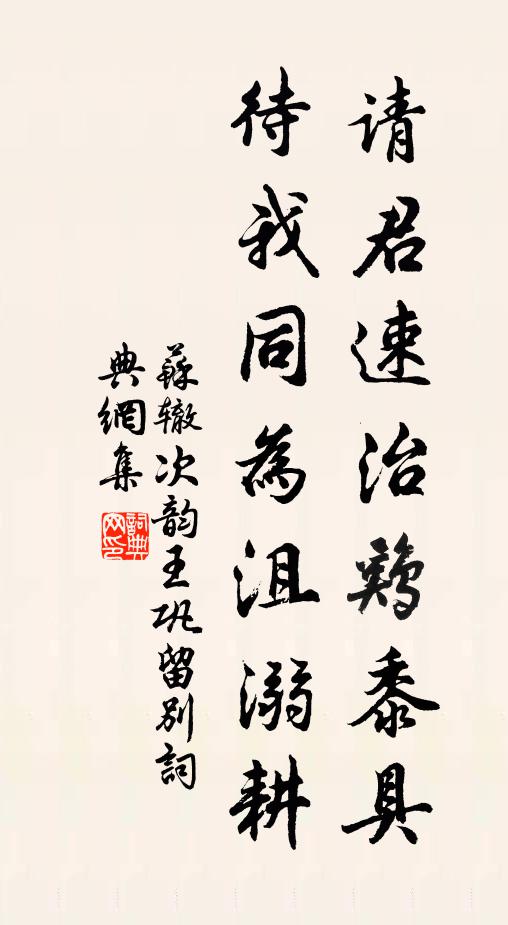 请君速治鸡黍具
待我同為沮溺耕
蘇辙次韵王巩留别詞
典網集
詞典网印